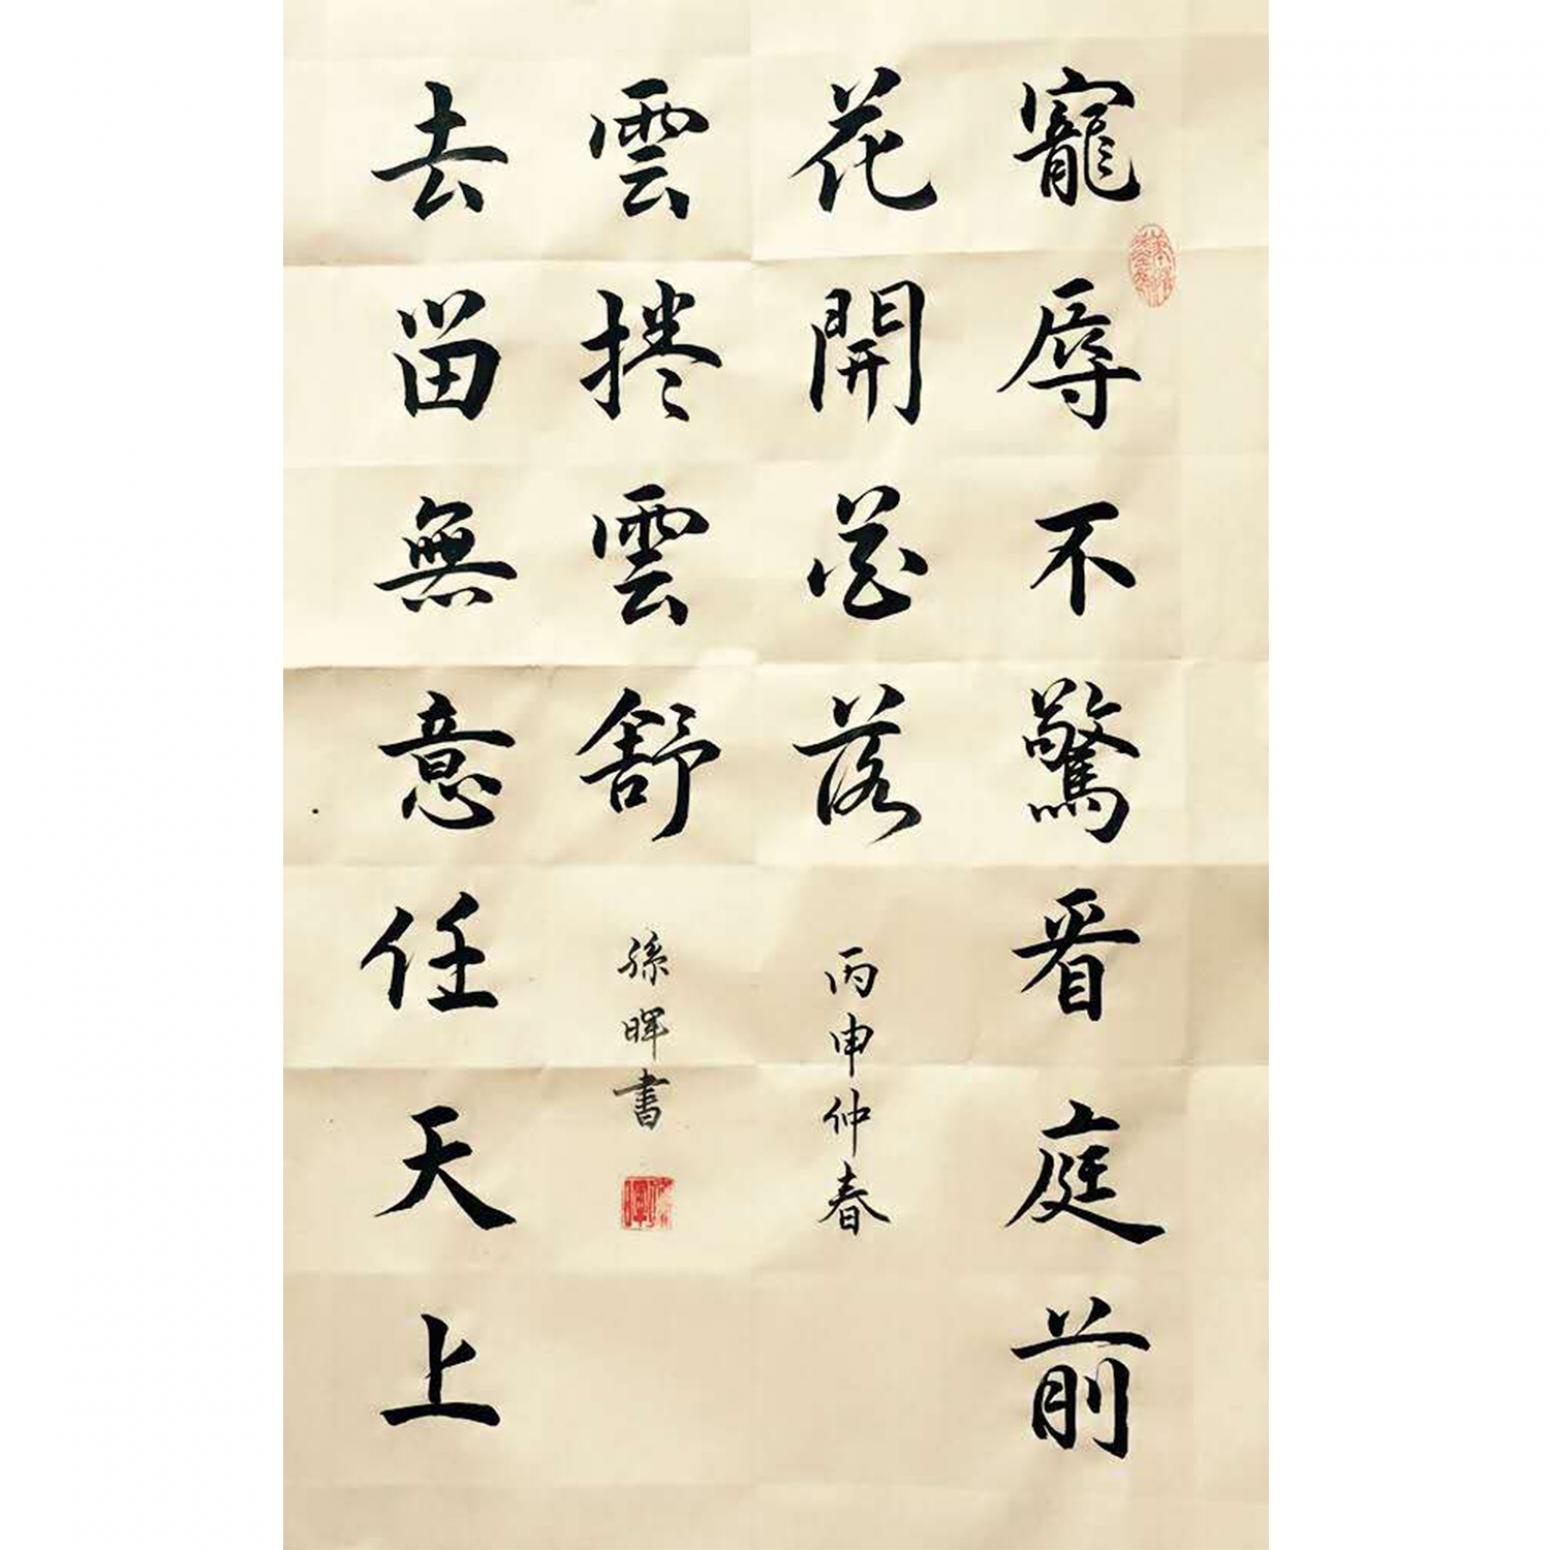 寵辱不驚看庭前
花開花落
去留無意任天上
雲捲雲舒
丙申仲春
孫暉書